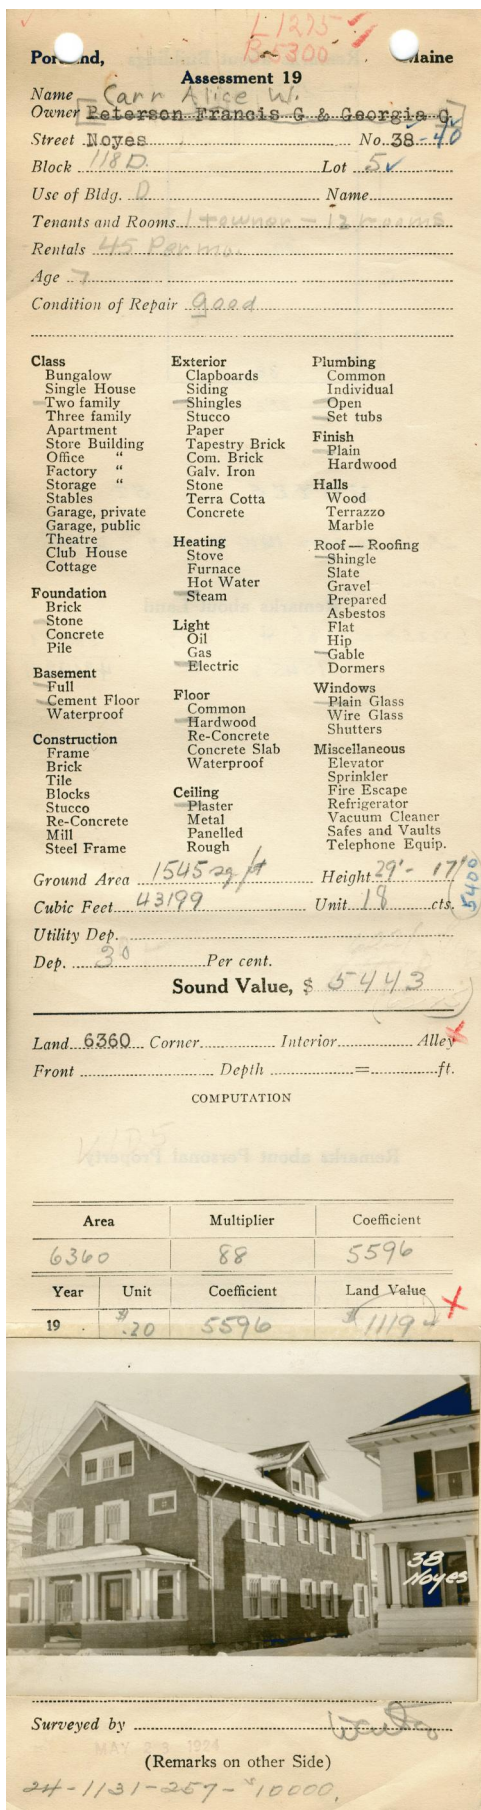 L1275
B5300
Portland, Maine
Assessment 19
Name Carr Alice W.
Owner Peterson Francis G & Georgia G
Street Noyes No. 38-40
Block 118D Lot 5
Use of Bldg. D Name
Tenants and Rooms 1 + owner - 12 rooms
Rentals 45 Per mo.
Age 7
Condition of Repair good
Class
Bungalow
Single House
Two family
Three family
Apartment
Store Building
Office "
Factory "
Storage "
Stables
Garage, private
Garage, public
Theatre
Club House
Cottage
Foundation
Brick
Stone
Concrete
Pile
Basement
Full
Cement Floor
Waterproof
Construction
Frame
Brick
Tile
Blocks
Stucco
Re-Concrete
Mill
Steel Frame
Exterior
Clapboards
Siding
Shingles
Stucco
Paper
Tapestry Brick
Com. Brick
Galv. Iron
Stone
Terra Cotta
Concrete
Heating
Stove
Furnace
Hot Water
Steam
Light
Oil
Gas
Electric
Floor
Common
Hardwood
Re-Concrete
Concrete Slab
Waterproof
Ceiling
Plaster
Metal
Panelled
Rough
Plumbing
Common
Individual
Open
Set tubs
Finish
Plain
Hardwood
Halls
Wood
Terrazzo
Marble
Roof — Roofing
Shingle
Slate
Gravel
Prepared
Asbestos
Flat
Hip
Gable
Dormers
Windows
Plain Glass
Wire Glass
Shutters
Miscellaneous
Elevator
Sprinkler
Fire Escape
Refrigerator
Vacuum Cleaner
Safes and Vaults
Telephone Equip.
Ground Area 1545 sq ft Height 29' - 17'
Cubic Feet 43199 Unit 18 cts.
5400
Utility Dep.
Dep. 30 Per cent.
Sound Value, $ 5443
Land 6360 Corner Interior Alley
Front Depth = ft.
COMPUTATION
Remarks about Personal Property
Area Multiplier Coefficient
6360 88 5596
Year Unit Coefficient Land Value
19 $.20 5596 $1119
38
Noyes
Surveyed by
MAY 28 1924
(Remarks on other Side)
24-1131-257-$10000.